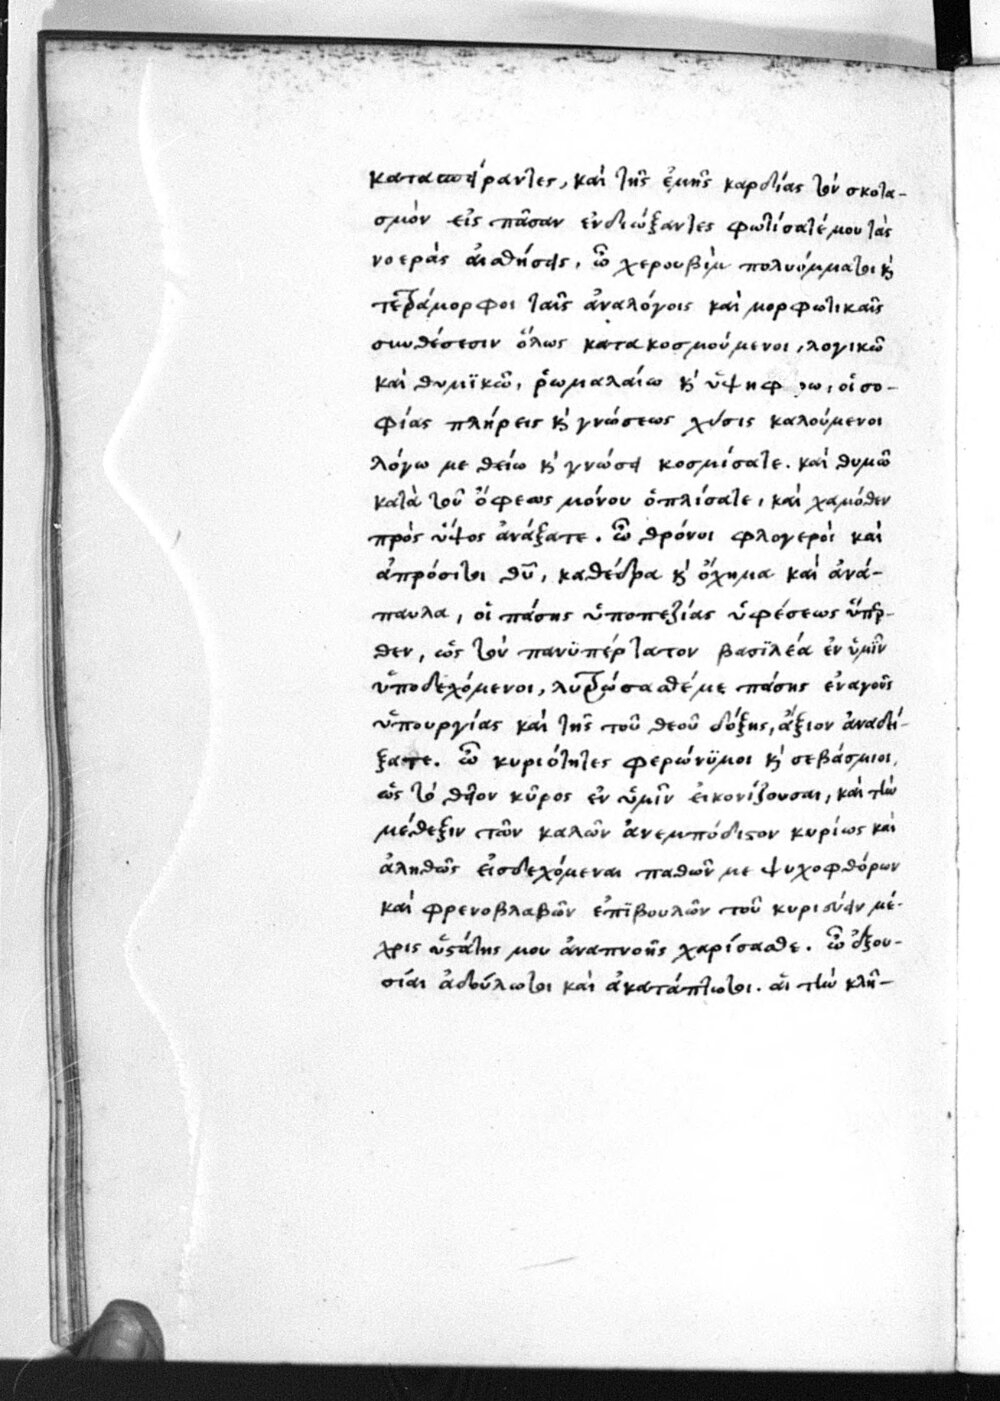 κατασπείραντες, καὶ τῆς ἐμῆς καρδίας τὸν σκοτα-
σμὸν εἰς πᾶσαν ἐνδιώξαντες φωτίσατέ μου τὰς
νοερὰς αἰσθήσεις, ὦ χερουβὶμ πολυόμματοι κ
τετράμορφοι ταῖς ἀναλόγοις καὶ μορφωτικαῖς
συνθέσεσιν ὅλως κατακοσμούμενοι, λογικῶ
καὶ θυμϊκῶ, ῥωμαλαίω κ ὑψηφ ρω, οἱ σο-
φίας πλήρεις κ γνώσεως χύσις καλούμενοι
λόγω με θείω κ γνώσει κοσμίσατε. καὶ θυμῶ
κατὰ τοῦ ὄφεως μόνου ὁπλίσατε, καὶ χαμόθεν
πρὸς ὕψος ἀνάξατε. ὦ θρόνοι φλογεροὶ καὶ
ἀπρόσιτοι θῦ, καθέδρα κ ὄχημα καὶ ἀνά-
παυλα, οἱ πάσης ὑποπεζίας ὑφέσεως ὕπερ-
θεν, ὡς τὸν πανϋπέρτατον βασϊλέα ἐν ὑμῖν
ὑποδεχόμενοι, λυτρώσασθέ με πάσης ἐναγοῦς
ὑπουργίας καὶ τῆς τοῦ θεοῦ δόξης, ἄξιον ἀναδεί-
ξατε. ὦ κυριότητες φερώνϋμοι κ σεβάσμιοι,
ὡς τὸ θεῖον κῦρος ἐν ὑμῖν εἰκονίζουσαι, καὶ τὴν
μέθεξιν τῶν καλῶν ἀνεμπόδιστον κυρίως καὶ
ἀληθῶς εἰσδεχόμεναι παθῶν με ψυχοφθόρων
καὶ φρενοβλαβῶν ἐπϊβουλῶν τοῦ κυριεύειν μέ-
χρις ὑστάτης μου ἀναπνοῆς χαρίσασθε. ὦ ἐξου-
σίαι ἀδούλωτοι καὶ ἀκατάπτωτοι. αἱ τὴν κλῆ-